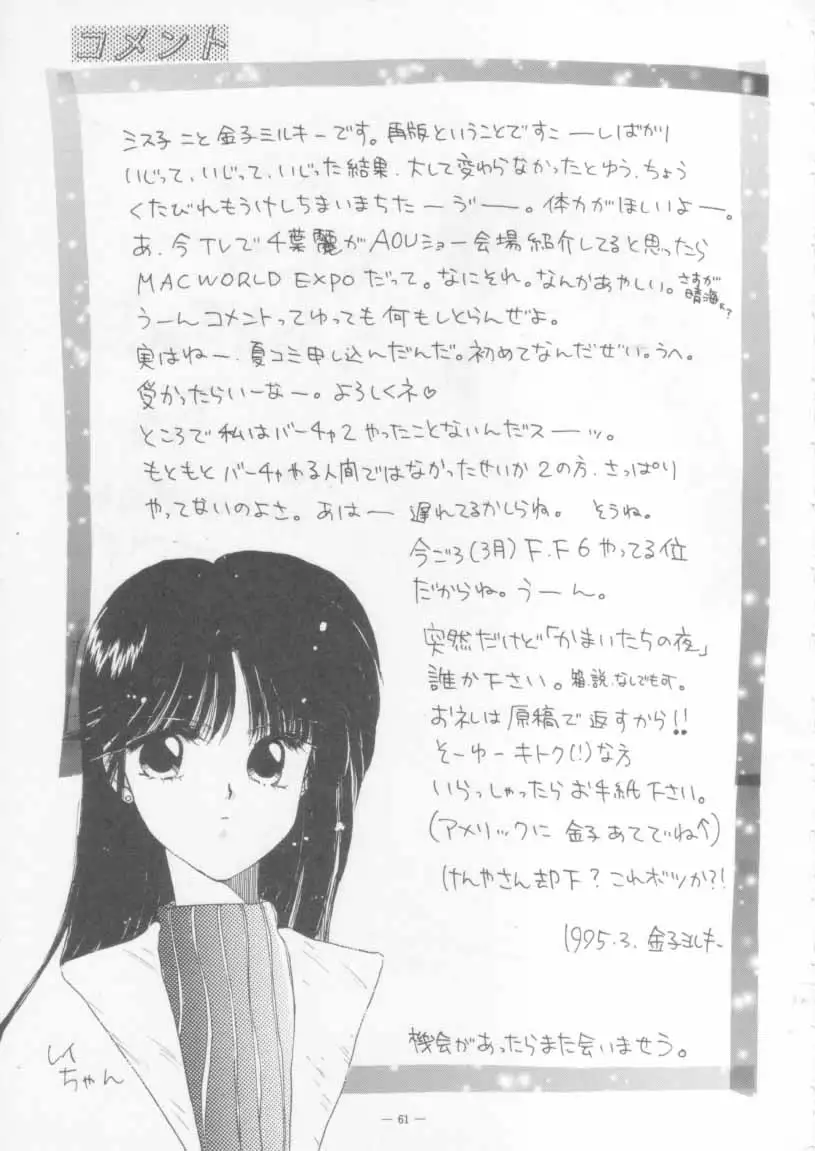 コメント
ミス子こと金子ミルキーです。再版ということですこーしばかり
いじって、いじって、いじった結果、大して変わらなかったとゆう、ちょう
くたびれもうけしちまいまちたーゔー。体力がほしいよー。
あ、今TVで千葉麗がAOUショー会場紹介してると思ったら
MACWORLD EXPOだって。なにそれ。なんかあやしい。さすが晴海
うーんコメントってゆっても何もしとらんぜよ。
実はねー、夏コミ申し込んだんだ。初めてなんだぜい。うへ。
受かったらいーなー。よろしくネ♡
ところで私はバーチャ2やったことないんだスーッ。
もともとバーチャやる人間ではなかったせいか2の方、さっぱり
やってないのよさ。あはー 遅れてるかしらね。 そうね。
今ごろ(3月)F.F6やってる位
だからね。うーん。
突然だけど「かまいたちの夜」
誰か下さい。箱、説、なしでもす。
お礼は原稿で返すから!!
そーゆーキトク(!)な方
いらっしゃったらお手紙下さい。
(アメリックに 金子あてでね↑)
けんやさん却下?これボツか?!
1995.3. 金子ミルキー
機会があったらまた会いませう。
レイちゃん
— 61 —